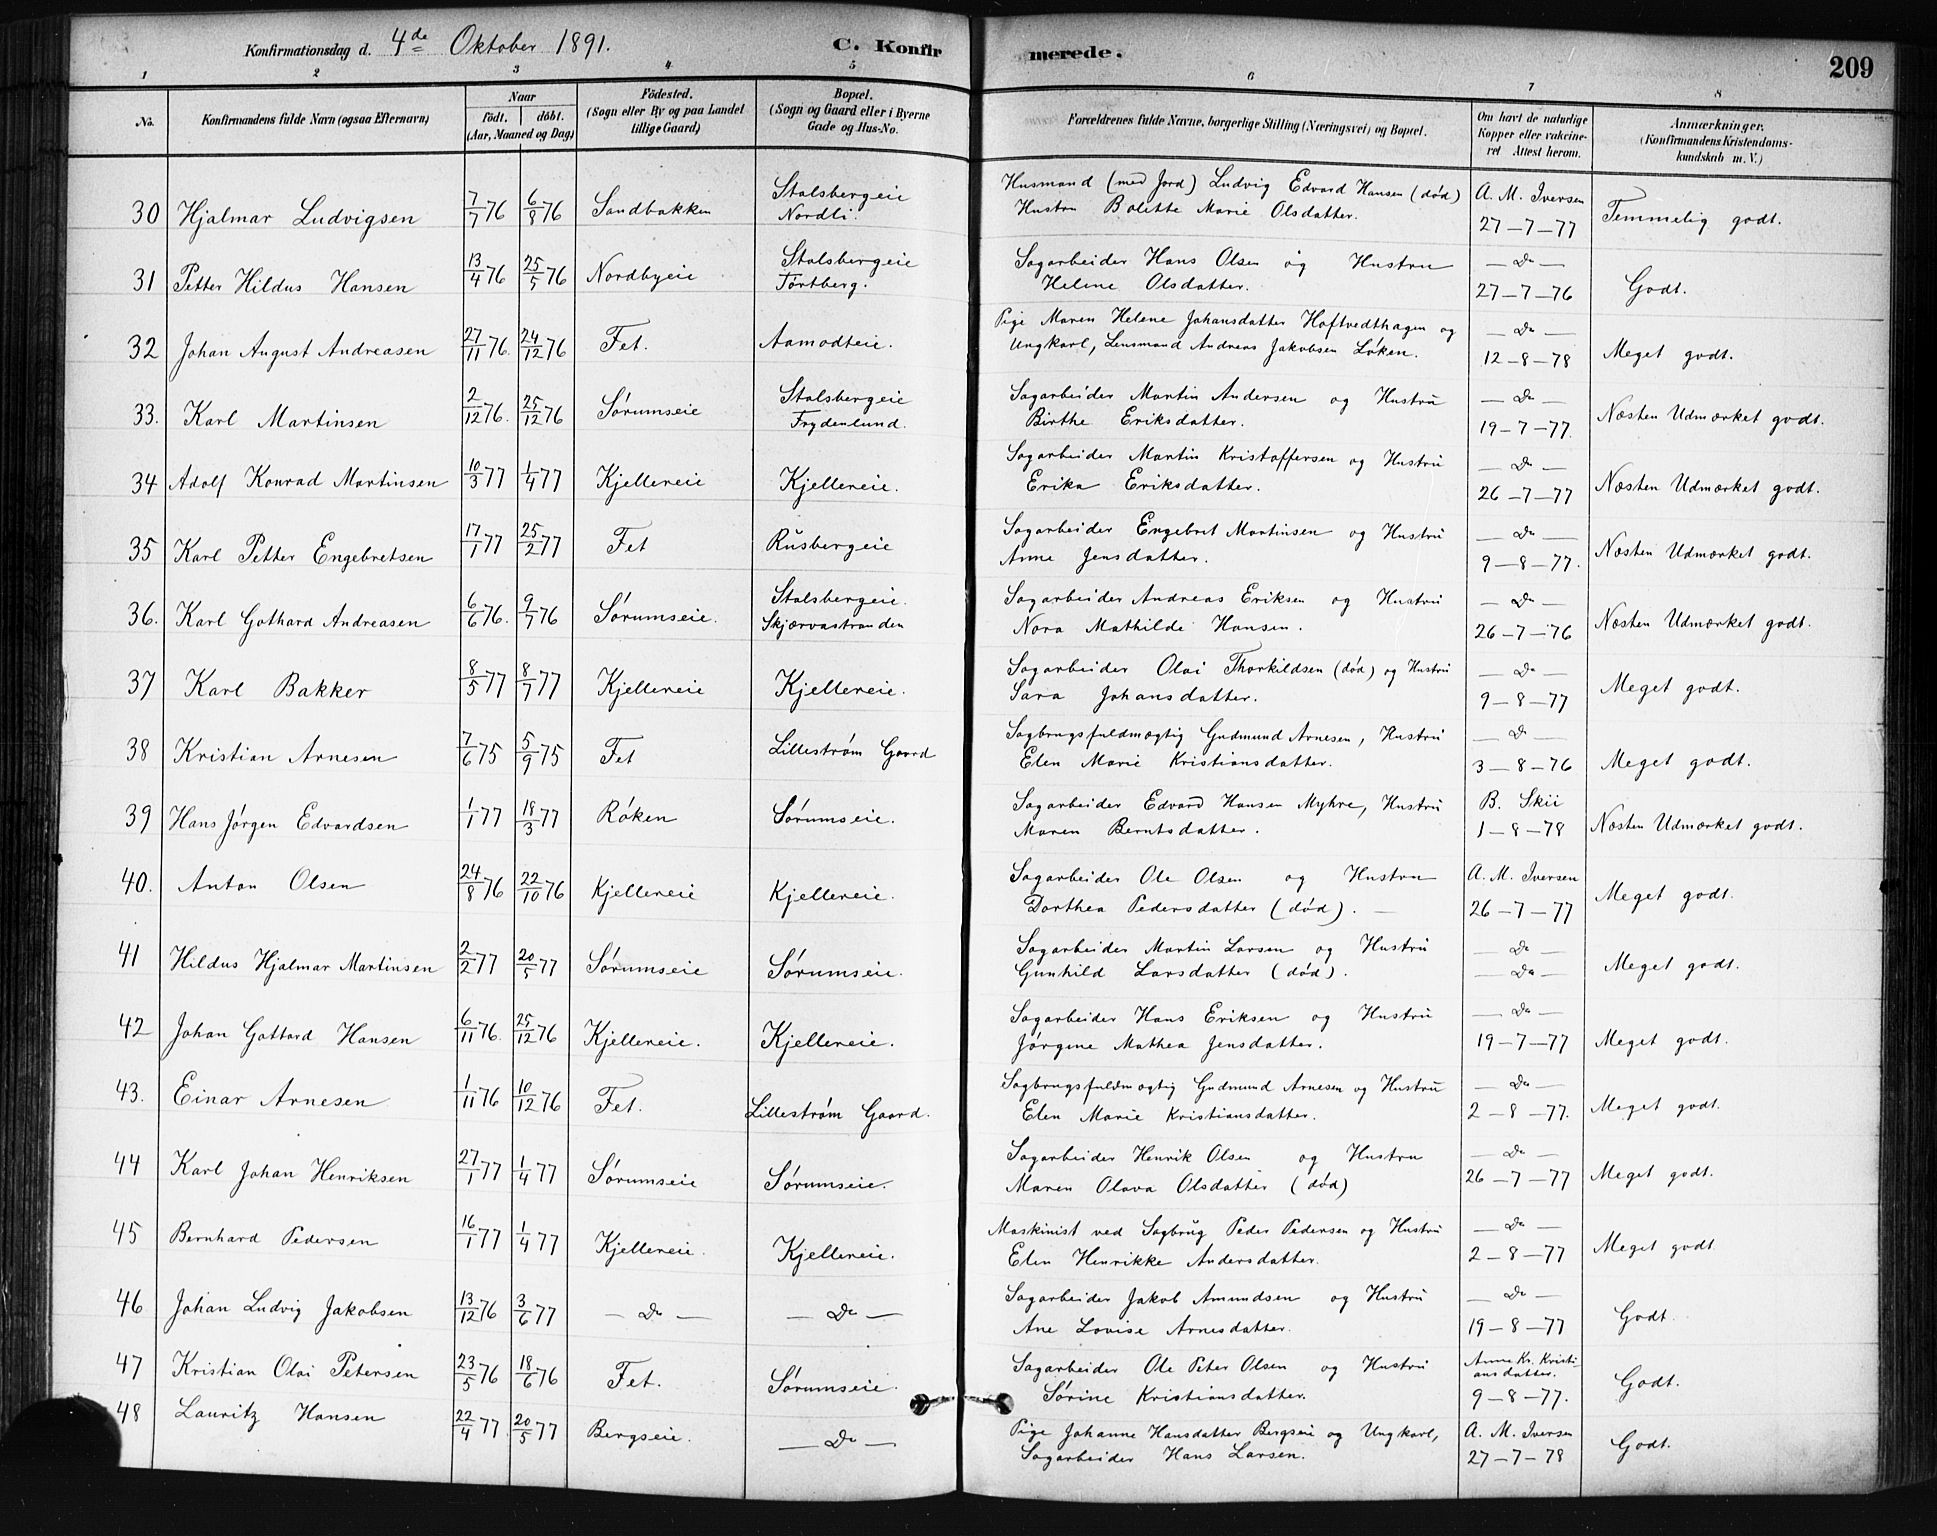 Konfirmationsdag d. 4de Oktober 1891. C. Konfirmerede. 209
1 2 3 4 5 6 7 8
No. | Konfirmandens fulde Navn (ogsaa Efternavn) | Naar födt. döbt. (Aar, Maaned og Dag) | Födested. (Sogn eller By og paa Landet tillige Gaard) | Bopæl. (Sogn og Gaard eller i Byerne Gade og Hus-No. | Forældrenes fulde Navne, borgerlige Stilling (Næringsvei) og Bopæl. | Om havt de naturlige Kopper eller vakcineret Attest herom. | Anmærkninger. (Konfirmandens Kristendomskundskab m. V.)
30 Hjalmar Ludvigsen 7/7 76 6/8 76 Sandbakken Stalsbergeie Nordli. Husmand (med Jord) Ludvig Edvard Hansen (død) Hustru Bolette Marie Olsdatter. A. M. Iversen 27-7-77 Temmelig godt.
31 Petter Hildus Hansen 13/4 76 25/5 76 Nordbyeie Stalsbergeie Tørtberg. Sagarbeider Hans Olsen og Hustru Helene Olsdatter. — Do — 27-7-76 Godt.
32 Johan August Andreasen 27/11 76. 24/12 76 Fet. Aamodteie. Pige Maren Helene Johansdatter Hoftvedthagen og Ungkarl, Lensmand Andreas Jakobsen Løken. — Do — 12-8-78 Meget godt.
33. Karl Martinsen 2/12 76. 25/12 76 Sørumseie Stalsbergeie Frydenlund. Sagarbeider Martin Andersen og Hustru Birthe Eriksdatter. — Do — 19-7-77. Næsten Udmærket godt.
34 Adolf Konrad Martinsen 10/3 77 1/4 77 Kjellereie Kjellereie. Sagarbeider Martin Kristoffersen og Hustru Erika Eriksdatter. — Do — 26-7-77 Næsten Udmærket godt.
35 Karl Petter Engebretsen 17/1 77 25/2 77 Fet Rusbergeie Sagarbeider Engebret Martinsen og Hustru Anne Jensdatter. — Do — 9-8-77. Næsten Udmærket godt.
36. Karl Gothard Andreasen 6/6 76. 9/7 76 Sørumseie. Stalsbergeie. Skjærvastranden Sagarbeider Andreas Eriksen og Hustru Nora Mathilde Hansen. — Do — 26-7-76 Næsten Udmærket godt.
37 Karl Bakker 8/5 77 8/7 77 Kjellereie Kjellereie. Sagarbeider Olai Thorkildsen (død) og Hustru Sara Johansdatter. — Do — 9-8-77 Meget godt.
38 Kristian Arnesen 7/6 75 5/9 75 Fet Lillestrøm Gaard Sagbrugsfuldmægtig Gudmund Arnesen, Hustru Elen Marie Kristiansdatter. — Do — 3-8-76 Meget godt.
39 Hans Jørgen Edvardsen 1/1 77 18/3 77 Røken Sørumseie. Sagarbeider Edvard Hansen Myhre, Hustru Maren Berntsdatter. B. Skii 1-8-78 Næsten Udmærket godt.
40. Anton Olsen 24/8 76 22/10 76 Kjellereie Kjellereie. Sagarbeider Ole Olsen og Hustru Dorthea Pedersdatter (død). — A. M. Iversen 26-7-77 Meget godt.
41 Hildus Hjalmar Martinsen 2/2 77 20/5 77 Sørumseie Sørumseie. Sagarbeider Martin Larsen og Hustru Gunhild Larsdatter (død). — Do — — Do — Meget godt.
42 Johan Gottard Hansen 6/11 76. 25/12 76 Kjellereie. Kjellereie. Sagarbeider Hans Eriksen og Hustru Jørgine Mathea Jensdatter. — Do — 19-7-77 Meget godt.
43. Einar Arnesen 1/11 76 10/12 76 Fet. Lillestrøm Gaard. Sagbrugsfuldmægtig Gudmund Arnesen og Hustru Elen Marie Kristiansdatter. — Do — 2-8-77. Meget godt.
44 Karl Johan Henriksen 27/1 77 1/4 77 Sørumseie Sørumseie. Sagarbeider Henrik Olsen og Hustru Maren Olava Olsdatter (død) — Do — 26-7-77 Meget godt.
45 Bernhard Pedersen 16/1 77 1/4 77 Kjellereie. Kjellereie. Maskinist ved Sagbrug Peder Pedersen og Hustru Elen Henrikke Andersdatter. — Do — 2-8-77 Meget godt
46 Johan Ludvig Jakobsen 13/12 76 3/6 77 — Do — — Do — Sagarbeider Jakob Amundsen og Hustru Ane Lovise Arnesdatter. — Do — 19-8-77 Godt.
47 Kristian Olai Petersen 23/5 76 18/6 76 Fet. Sørumseie. Sagarbeider Ole Peter Olsen og Hustru Sørine Kristiansdatter. Anne Kr. Kristiansdatter. 9-8-77. Godt.
48 Lauritz Hansen 22/4 77 20/5 77 Bergseie. — Do — Pige Johanne Hansdatter Bergseie og Ungkarl, Sagarbeider Hans Larsen. A. M. Iversen 27-7-78 Godt.